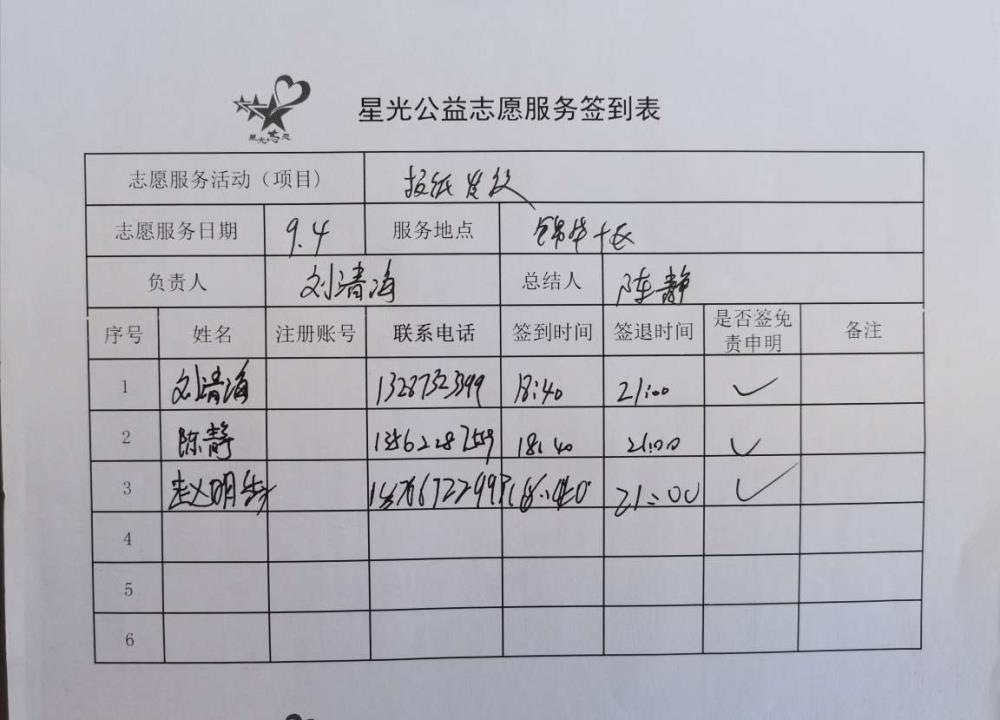 星光志愿
星光公益志愿服务签到表
志愿服务活动（项目） 报纸发放
志愿服务日期 9.4 服务地点 锦华十区
负责人 刘清海 总结人 陈静
序号 姓名 注册账号 联系电话 签到时间 签退时间 是否签免责申明 备注
1 刘清海 18:40 21:00 ✓
2 陈静 18:40 21:00 ✓
3 赵明 18:40 21:00 ✓
4
5
6